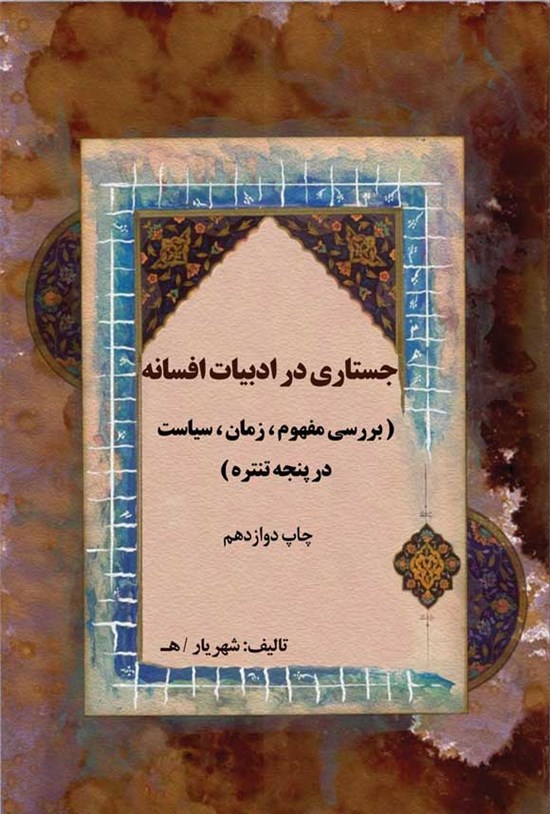 جستاری در ادبیات افسانه
( بررسی مفهوم ، زمان ، سیاست
در پنجه تنتره )
چاپ دوازدهم
تالیف: شهریار / هـ